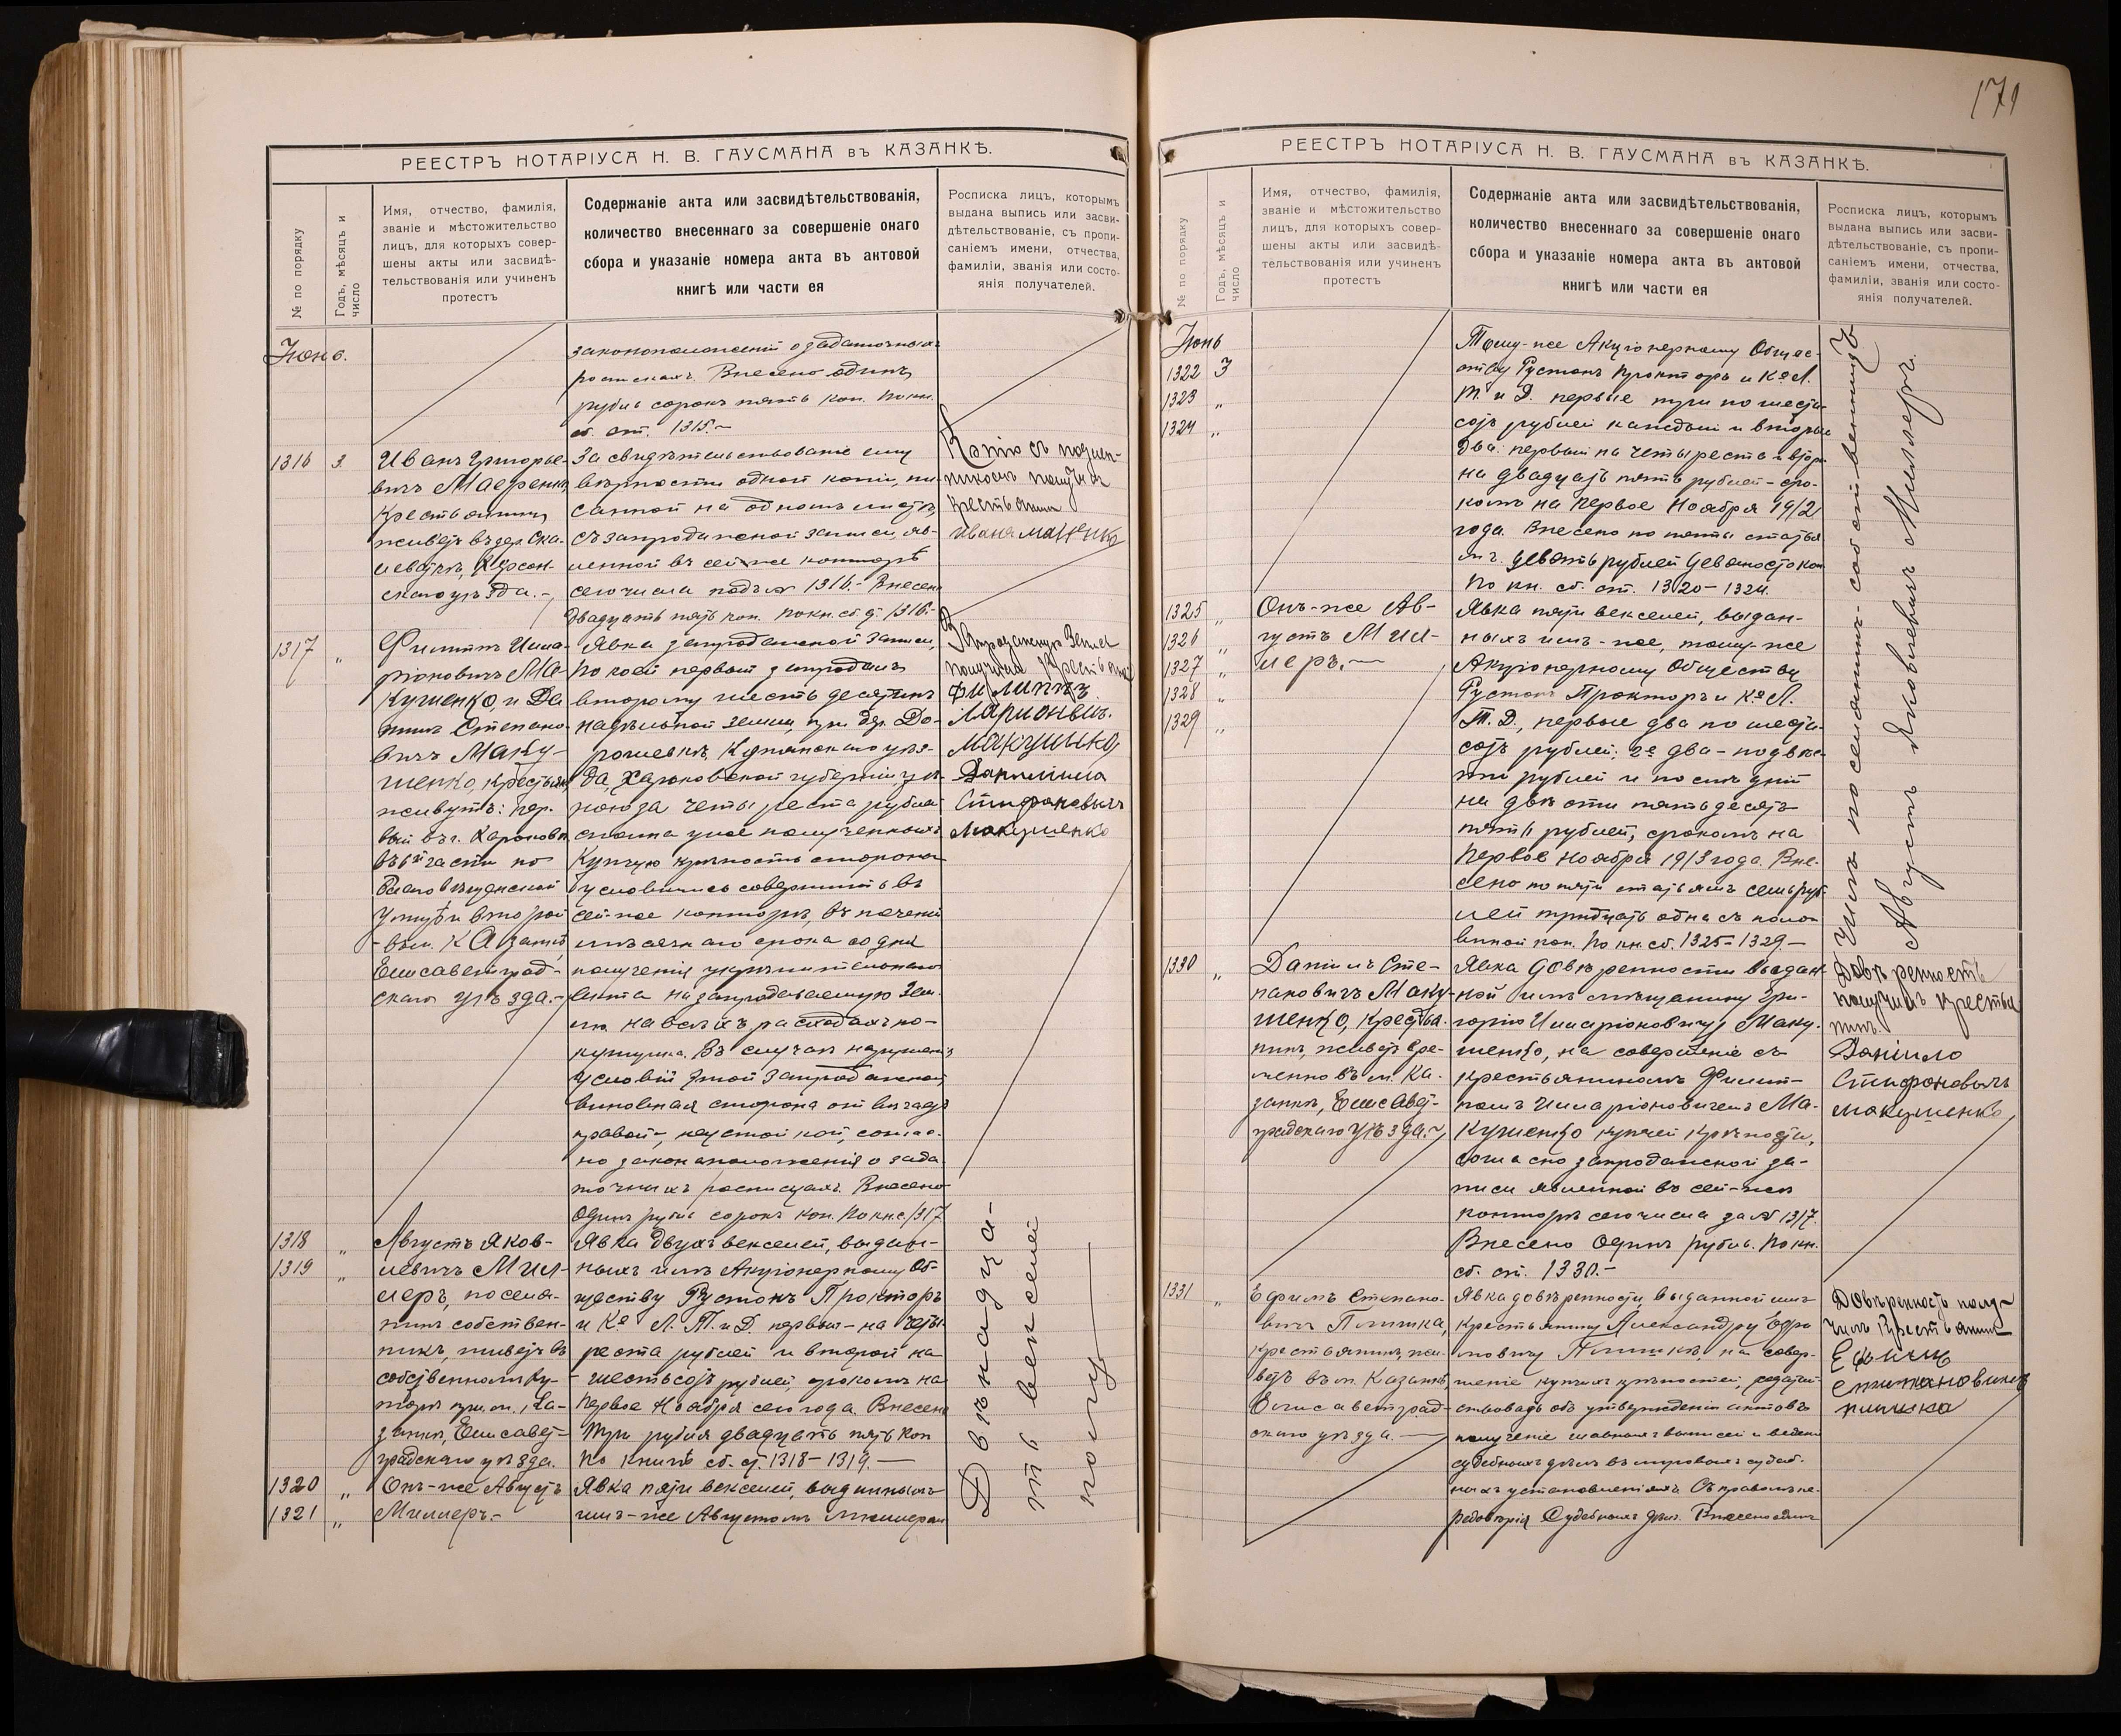 171
РЕЕСТРЪ НОТАРІУСА Н. В. ГАУСМАНА въ КАЗАНКѢ.
№ по порядку
Годъ, мѣсяцъ и
число
Имя, отчество, фамилія,
званіе и мѣстожительство
лицъ, для которыхъ совер-
шены акты или засвидѣ-
тельствованія или учиненъ
протестъ
Содержаніе акта или засвидѣтельствованія,
количество внесеннаго за совершеніе онаго
сбора и указаніе номера акта въ актовой
книгѣ или части ея
Росписка лицъ, которымъ
выдана выпись или засви-
дѣтельствованіе, съ пропи-
саніемъ имени, отчества,
фамиліи, званія или состо-
янія получателей.
Іюнь.
законоположеній о задаточныхъ
роспискахъ. Внесено одинъ
рубль сорокъ пять коп. По кн.
сб. ст. 1315.-
1316 3.
Иванъ Григорье-
вичъ
Крестьянинъ,
живетъ въ дер. Ска-
левaткѣ, Херсон-
скаго уѣзда.-
Засвидѣтельствованіе ему
вѣрности одной копіи, пи-
санной на одномъ листѣ,
съ запродажной записи, яв-
ленной въ сей же конторѣ
сего числа подъ № 1316.- Внесено
двадцать пять коп. По кн. сб. ст. 1316.-
Копію съ подлин-
никомъ получилъ
крестьянин
Иванъ
1317 "
Филиппъ Илла-
ріоновичъ Ма-
кушенко, и Да-
ніилъ Степано-
вичъ Маку-
шенко, крестьяне
живутъ: пер-
вый въ г. Харьковѣ
въ 6й части по
улицѣ и второй
- въ м. Казанкѣ,
Елисаветград-
скаго уѣзда.-
Явка запродажной записи,
по коей первый запродалъ
второму шесть десятинъ
надѣльной земли, при дер. До-
рошевкѣ, Купянскаго уѣз-
да, Харьковской губерніи, цѣ-
ною за четыреста рублей
сполна уже полученныхъ
Купчую крѣпость стороны
условились совершить въ
сей-же конторѣ, въ теченіи
мѣсячнаго срока со дня
полученія укрѣпительнаго
акта на запродаваемую зем-
лю. На всѣхъ расходахъ по-
купщика. Въ случаѣ нарушенія
условій этой запродажной,
виновная сторона отвѣчаетъ
правой-, неустойкой, соглас-
но законоположенія о зада-
точныхъ роспискахъ. Внесено
Одинъ рубль сорокъ коп. По кн. с. 1317
Запродажную Запись
получили Крестьяне
Филиппъ
Ларионвич.
Макушенко,
Данилило
Стифановичъ
Макушенко
1318 "
1319 "
Августъ Яков-
левичъ Мил-
леръ, поселя-
нинъ собствен-
никъ, живетъ въ
собственномъ ху-
торѣ при м. Ка-
занкѣ, Елисавет-
градскаго уѣзда.
Явка двухъ векселей, выдан-
ныхъ имъ Акціонерному Об-
ществу Рустонъ Прокторъ
и Ко Л. Т. и Д. первый - на четы-
реста рублей и второй на
- шестьсотъ рублей, срокомъ на
первое Ноября сего года. Внесено
Три рубля двадцать пять коп
по книгѣ сб. ст. 1318-1319.-
1320 "
1321 "
Онъ-же Августъ
Миллеръ.-
Явка пяти векселей, выданныхъ
имъ-же Августомъ Миллеромъ
Двѣнадца-
ть векселей
получ-
РЕЕСТРЪ НОТАРІУСА Н. В. ГАУСМАНА въ КАЗАНКѢ.
№ по порядку
Годъ, мѣсяцъ и
число
Имя, отчество, фамилія,
званіе и мѣстожительство
лицъ, для которыхъ совер-
шены акты или засвидѣ-
тельствованія или учиненъ
протестъ
Содержаніе акта или засвидѣтельствованія,
количество внесеннаго за совершеніе онаго
сбора и указаніе номера акта въ актовой
книгѣ или части ея
Росписка лицъ, которымъ
выдана выпись или засви-
дѣтельствованіе, съ пропи-
саніемъ имени, отчества,
фамиліи, званія или состо-
янія получателей.
Іюнь
1322 3
1323 "
1324 "
Тому-же Акціонерному Общес-
тву Рустонъ Прокторъ и Ко Л.
Т. и Д. первые три по шесть-
сотъ рублей каждый и вторые
два: первый на четыреста и второй
на двадцать пять рублей - сро-
комъ на первое Ноября 1912
года. Внесено по пяти статья-
мъ девять рублей девяносто коп
По кн. сб. ст. 1320-1324.
1325 "
1326 "
1327 "
1328 "
1329 "
Онъ-же Ав-
густъ Мил-
леръ.-
Явка пяти векселей, выдан-
ныхъ имъ-же, тому-же
Акціонерному Обществу
Рустонъ Прокторъ и Ко Л.
Т. Д., первые два по шесть-
сотъ рублей; 2е два - по двѣс-
ти рублей и послѣдній
на двѣсти пятьдесятъ
пять рублей, срокомъ на
первое ноября 1913 года. Вне-
сено по пяти статьямъ семь руб-
лей тридцать одна съ поло-
виной коп. По кн. сб. 1325-1329.-
илъ поселянинъ-собственникъ
Августъ Яковлевичъ Миллеръ.
1330 "
Даніилъ Сте-
пановичъ Маку-
шенко, крестья-
нинъ, живетъ вре-
менно въ м. Ка-
занкѣ, Елисавет-
градскаго уѣзда.-
Явка довѣренности выдан-
ной имъ мѣщанину Гри-
горію Илларіоновичу Маку-
шенко, на совершеніе съ
крестьяниномъ Филип-
помъ Илларіоновичемъ Ма-
кушенко купчей крѣпости,
согласно запродажной за-
писи явленной въ сей-же
конторѣ сего числа за № 1317.
Внесено Одинъ рубль. По кн.
сб. ст. 1330.-
Довѣренность
получилъ крестья-
нинъ.
Даніило
Стифановичъ
Макушенко
1331 "
Ефимъ Степано-
вичъ Плишка,
крестьянинъ, жи-
ветъ въ м. Казанкѣ,
Елисаветград-
скаго уѣзда.-
Явка довѣренности, выданной имъ
крестьянину Александру Ефи-
мовичу Плишкѣ, на совер-
шеніе купчихъ крѣпостей, ходатай-
ствовать объ утвержденіи актовъ
полученіе главныхъ выписей и веденіе
судебныхъ дѣлъ въ мировыхъ судеб-
ныхъ установленіяхъ. Съ правомъ пе-
редовѣрія Судебныхъ дѣлъ. Внесено одинъ
Довѣренность полу-
чилъ Крестьянин
Ефимъ
Степановичъ
Плишка